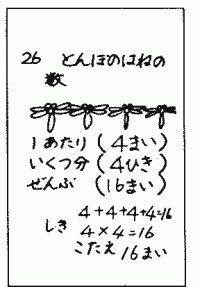 26 とんぼのはねの
数
1あたり(4まい)
いくつ分(4ひき)
ぜんぶ(16まい)
しき 4+4+4+4=16
4×4=16
こたえ 16まい